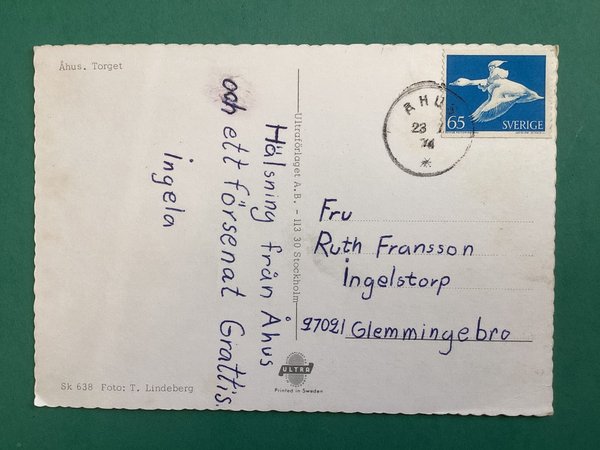 Åhus. Torget
Hälsning från Åhus
och ett försenat Grattis.
Ingela
Ultraförlaget A.B. - 113 30 Stockholm
ÅHUS
23
74
*
65 SVERIGE
Fru
Ruth Fransson
Ingelstorp
27021 Glemmingebro
ULTRA
Printed in Sweden
Sk 638 Foto: T. Lindeberg